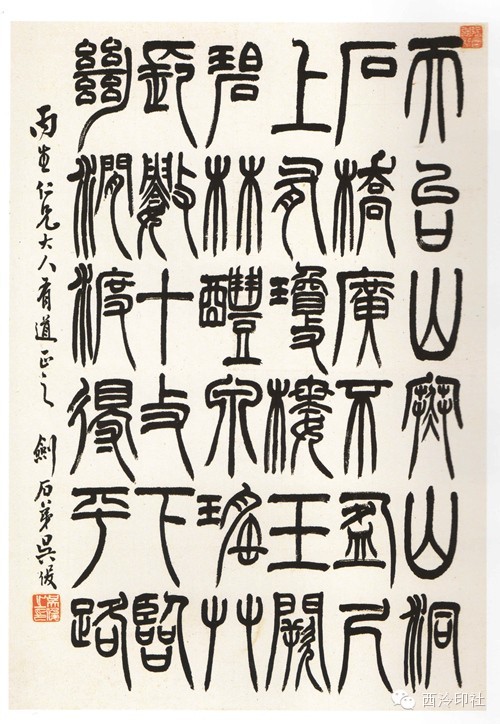 天台山山洞
石橋廣不盈尺
上有瓊樓玉闕
碧林醴泉瑤草
長數十步下臨
絕澗渡得平路
生仁兄大人有道正之 劍石弟吳俊
西泠印社